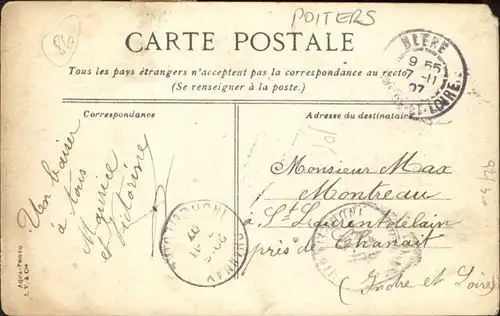 POITERS
86
CARTE POSTALE
Tous les pays étrangers n'acceptent pas la correspondance au recto
(Se renseigner à la poste.)
BLERE
9 55
7 - 11
07
ET-LOIRE
Correspondance
Adresse du destinataire
Un baiser
à tous
Maurice
et Victorine
Monsieur Max
Montreau
à St Laurent
près de Chanait
(Indre et Loire)
AQUA-PHOTO
L. V. & Cie